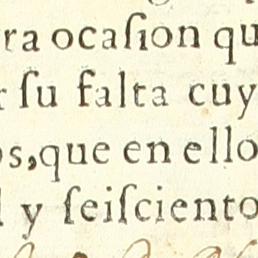 ra ocaſion qu
r ſu falta cuy
os, que en ello
l y ſeiſciento